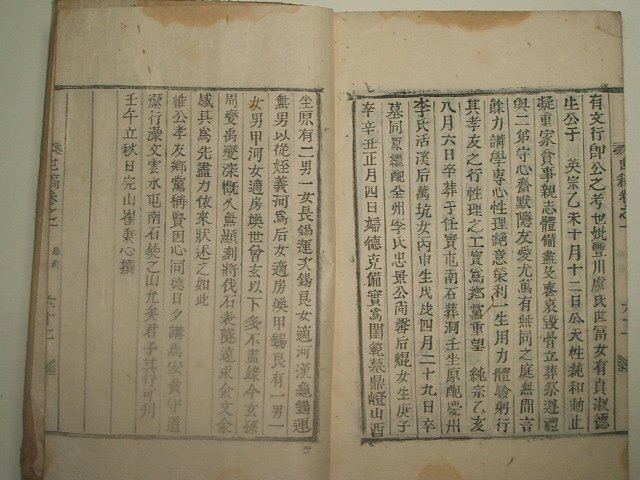 有文行即公之考世妣豊川盧氏富女有貞淑德
生公于 英宗乙未十月十二日公天性純和動止
凝重家貧事親志體備盡及喪哀毀骨立葬祭遵禮
與二弟守心齋默隱友愛尤篤有無同之庭無間言
餘力講學專心性理絶意榮利一生用力體驗躬行
其孝友之行性理之工實爲鄕黨重望 純宗乙亥
八月六日卒葬于任實屯南石葬洞壬坐原配慶州
李氏活漢后萬坑女丙申生戊戌四月二十九日卒
墓同原繼配全州李氏忠景公尚馨后焜女生庚子
卒辛丑正月四日婦德克備實爲閨範墓鼎嶝山酉
坐原有二男一女長錫運次錫良女適河漢龜錫運
無男以從姪義河爲后女適房煥甲錫良有一男一
女男甲河女適房煥世曾玄以下多不盡錄今玄孫
周燮禹燮深慨久無顯刻將伐石表隧遠求余文余
感其爲先盡力依來狀述之如此
惟公孝友鄕黨稱賢因心同德日夕講焉安貧守道
潔行藻文雲水屯南石葬之山允矣君子其行可刊
壬午立秋日完山崔秉心撰
世稿卷之一 六十二